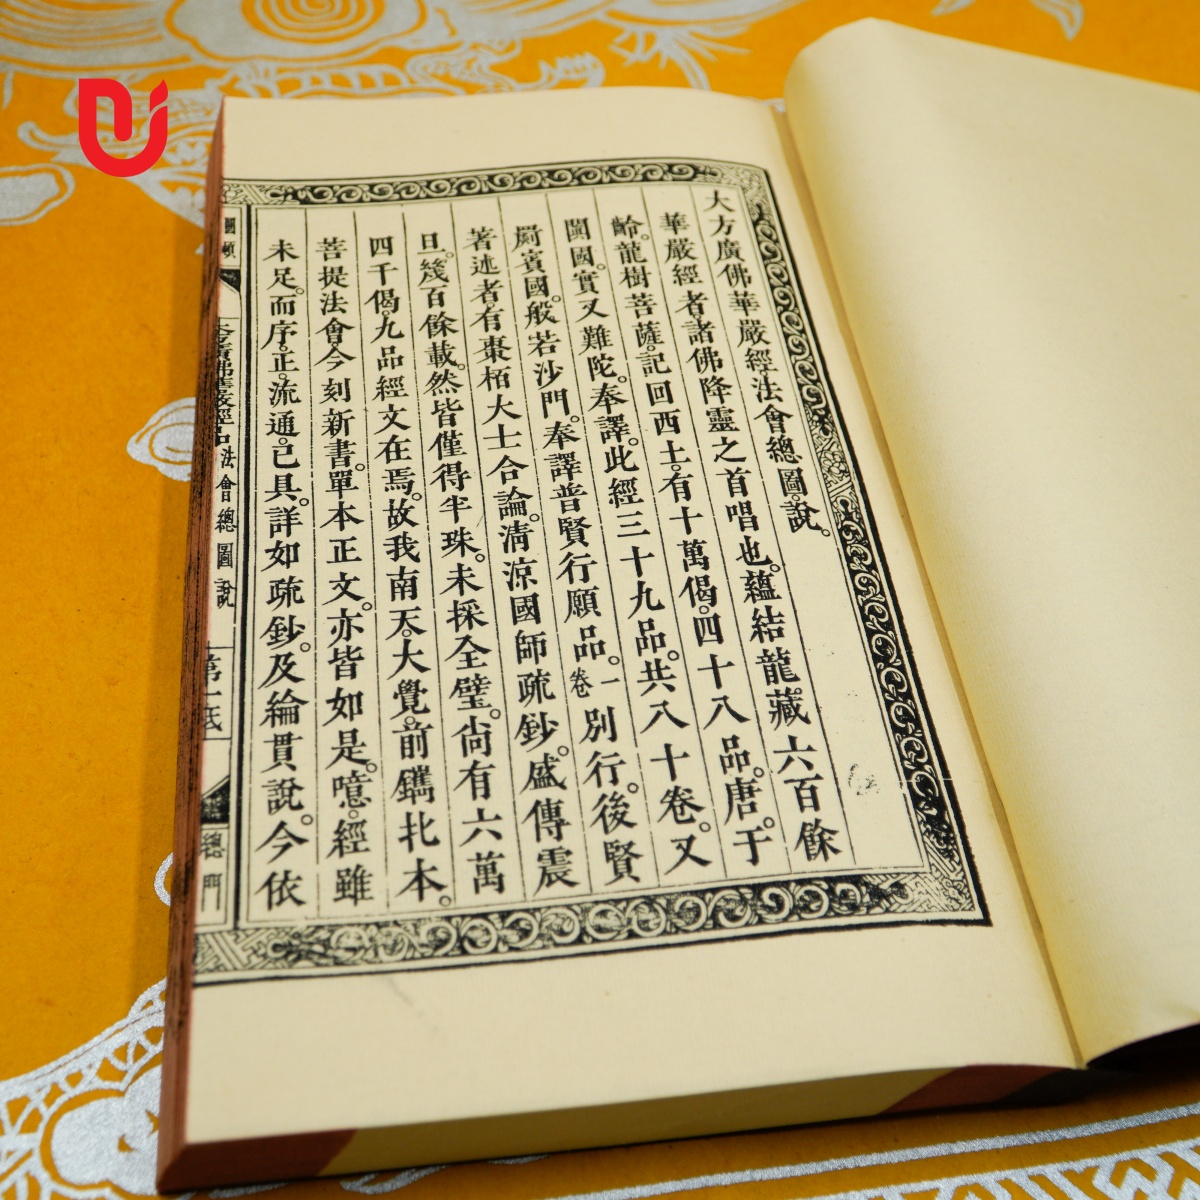 大方廣佛華嚴經。法會總圖說。
華嚴經者。諸佛降靈之首唱也。蘊結龍藏。六百餘
齡。龍樹菩薩。記回西土。有十萬偈。四十八品。唐。于
闐國。實叉難陀。奉譯。此經三十九品。共八十卷。又
罽賓國。般若沙門。奉譯普賢行願品。一卷別行。後賢
著述者。有棗栢大士合論。清涼國師疏鈔。盛傳震
旦。幾百餘載。然皆僅得半珠。未採全璧。尙有六萬
四千偈。九品經文在焉。故我南天。大覺。前鐫北本。
菩提法會。今刻新書。單本正文。亦皆如是。噫。經雖
未足。而序。正。流通。已具。詳如疏鈔。及綸貫說。今依
法會總圖說
總門